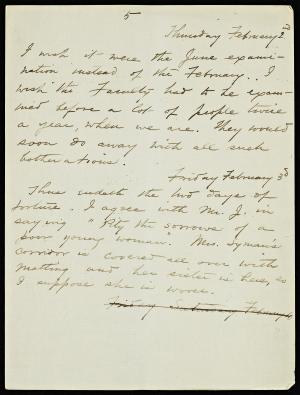 5
Thursday February 2d
I wish it were the June exami-
nation instead of the February. I
wish the Faculty had to be exam-
ined before a lot of people twice
a year, when we are. They would
soon do away with all such
botherations.
Friday February 3d
Thus endeth the two days of
torture. I agree with Mr. J. in
saying "Pity the sorrows of a
poor young woman". Mrs. Lyman's
corridor is covered all over with
matting and her sister is here, so
I suppose she is worse.
Friday Saturday February